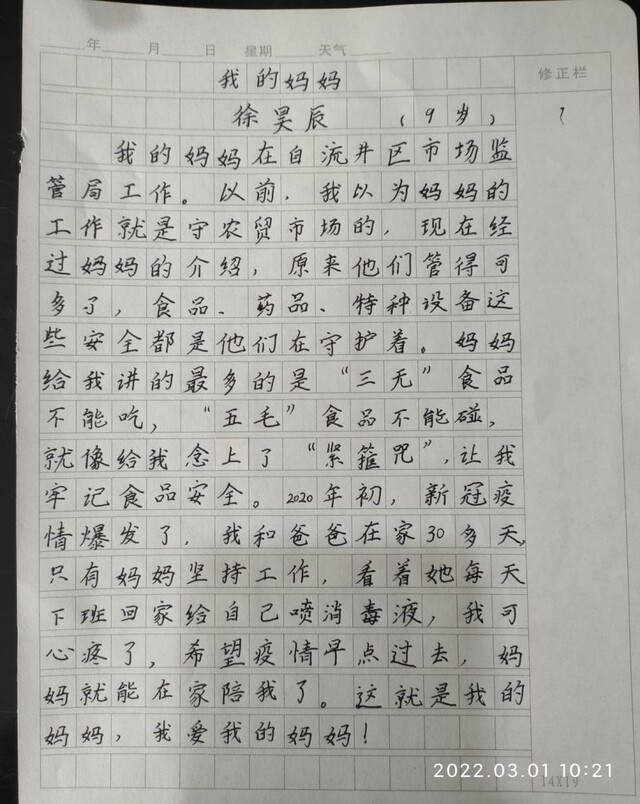 年 月 日 星期 天气
我的妈妈
修正栏
徐昊辰 (9岁)
我的妈妈在自流井区市场监
管局工作。以前,我以为妈妈的
工作就是守农贸市场的,现在经
过妈妈的介绍,原来他们管得可
多了,食品、药品、特种设备这
些安全都是他们在守护着。妈妈
给我讲的最多的是“三无”食品
不能吃,“五毛”食品不能碰,
就像给我念上了“紧箍咒”,让我
牢记食品安全。2020年初,新冠疫
情爆发了,我和爸爸在家30多天,
只有妈妈坚持工作,看着她每天
下班回家给自己喷消毒液,我可
心疼了,希望疫情早点过去,妈
妈就能在家陪我了。这就是我的
妈妈,我爱我的妈妈!
2022.03.01 10:21
14X19